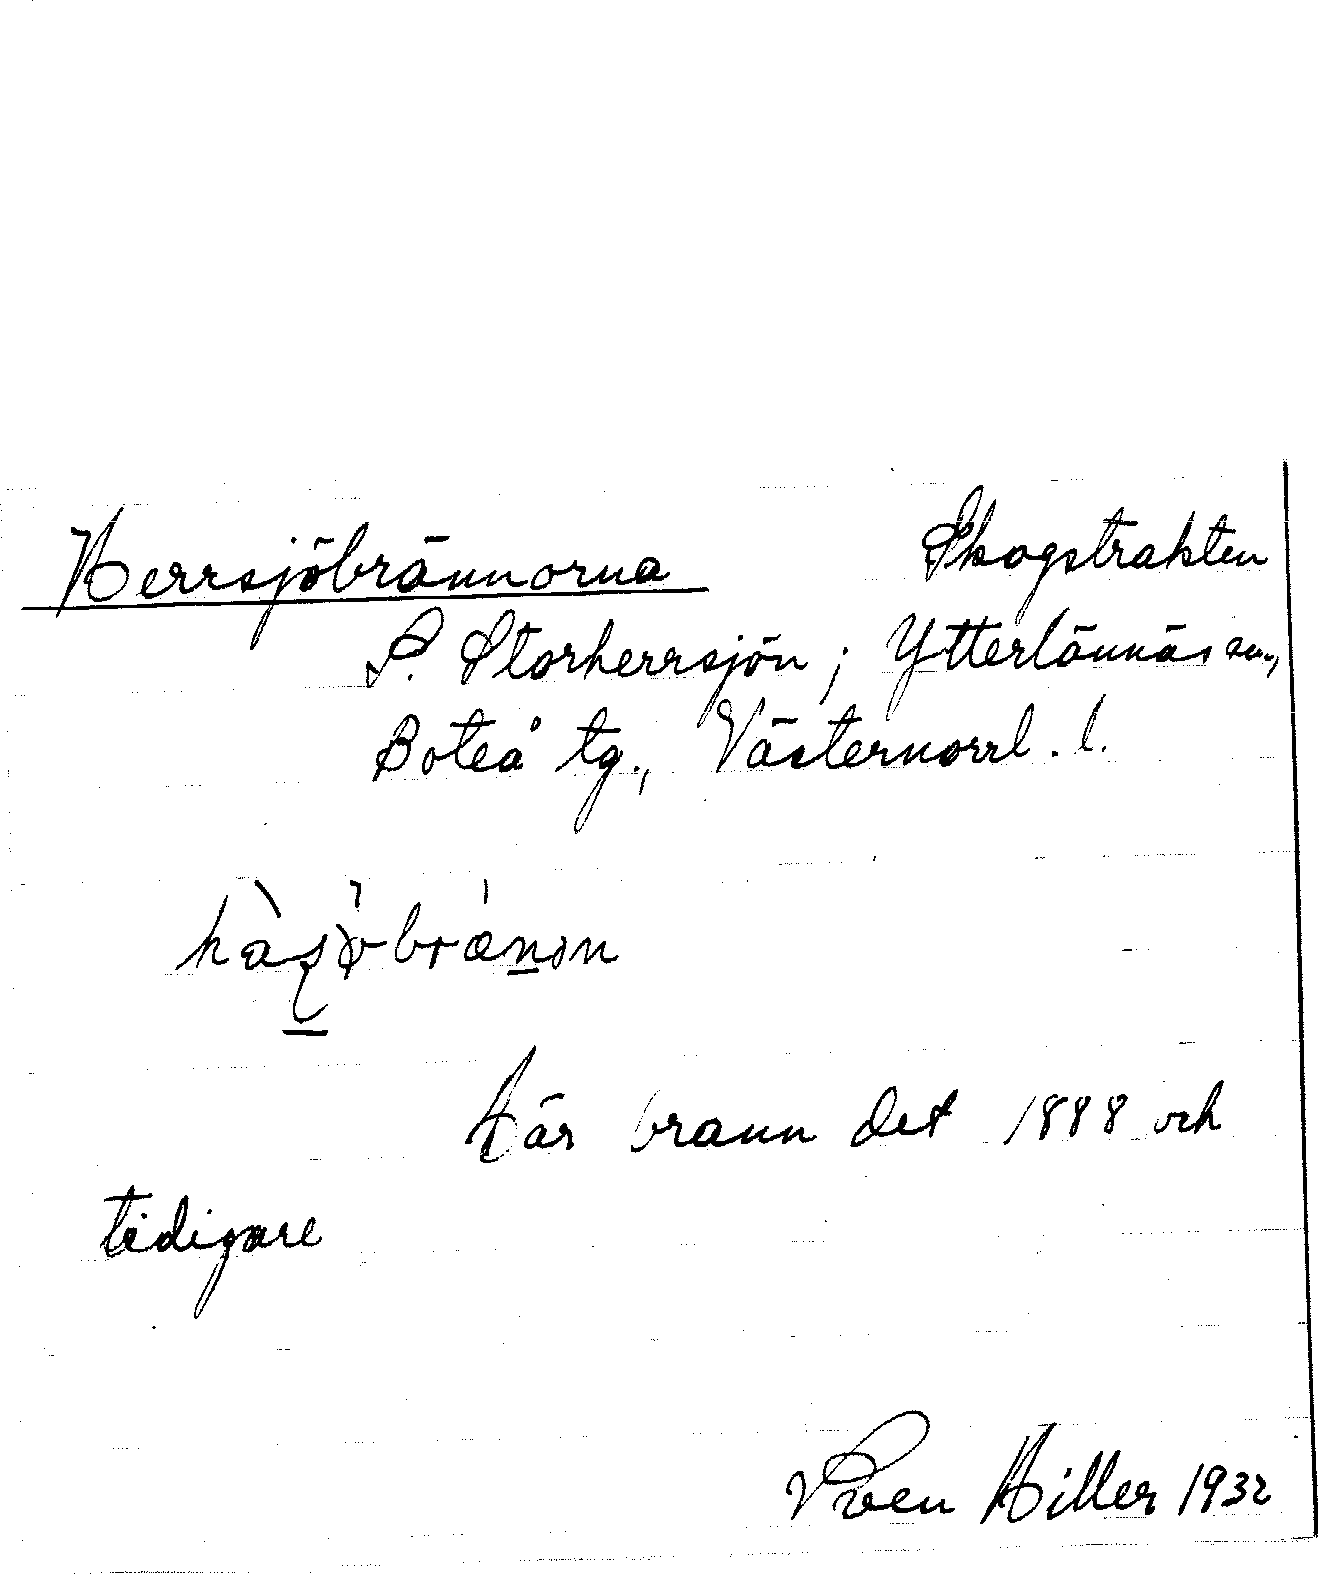 Herrsjöbrännorna Skogstrakten
S. Storherrsjön; Ytterlännäs sn.,
Boteå tg., Västernorrl. l.
Här brann det 1888 och
tidigare
Sven Hiller 1932